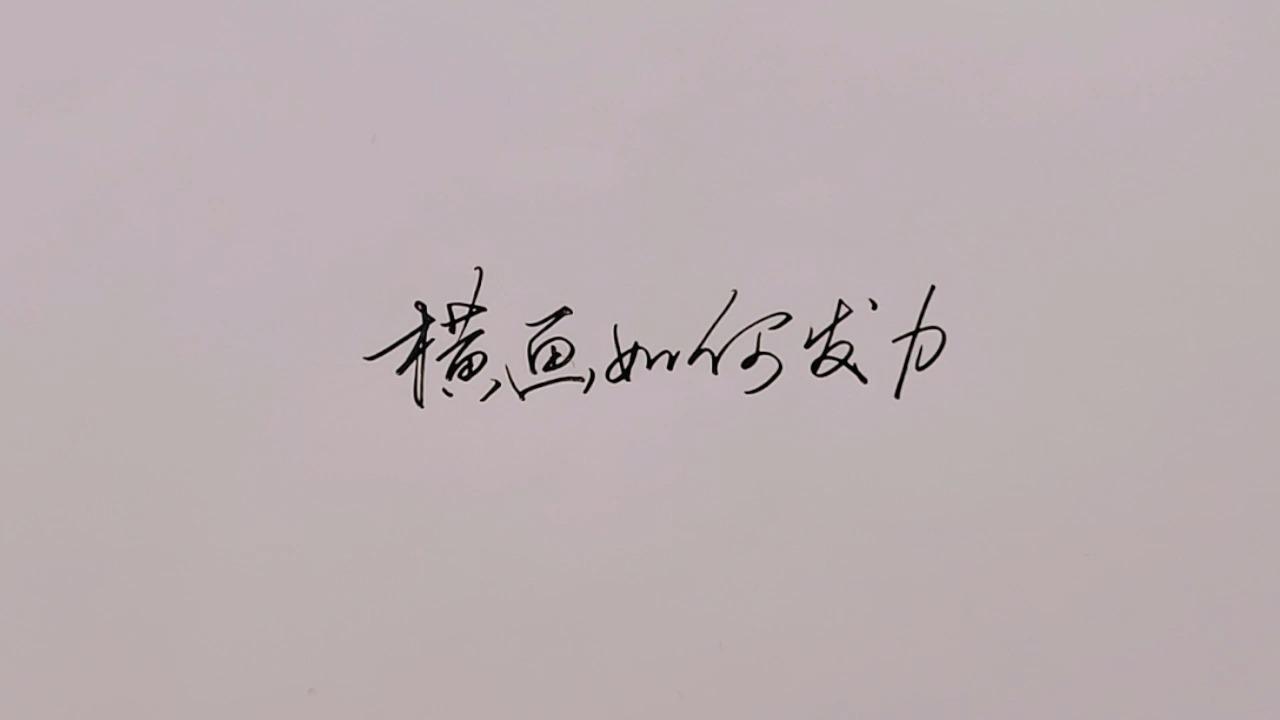 横画如何发力